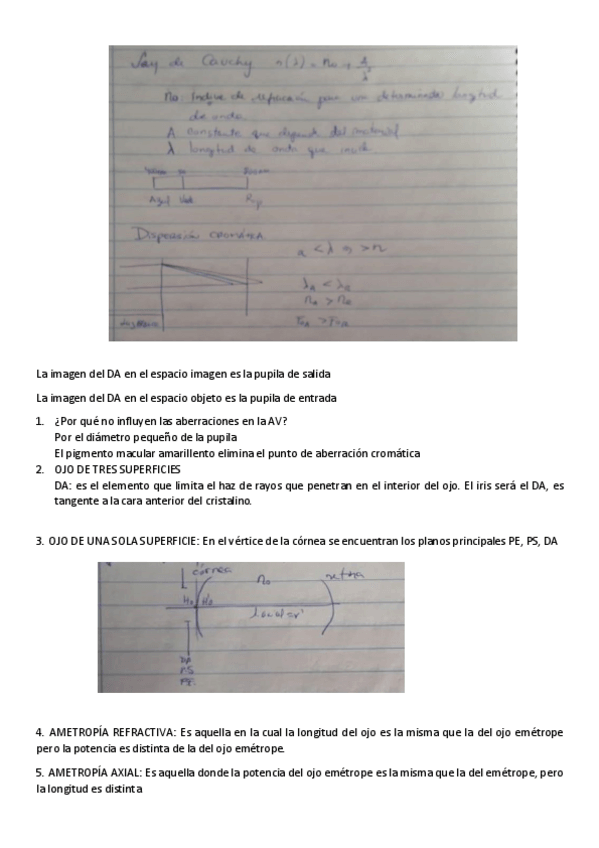 Ley de Cauchy n(λ) = n₀ + A/λ²
n₀: Indice de refracción para una determinada longitud
de onda
A constante que depende del material
λ longitud de onda que incide
Azul Verde
Dispersión CROMÁTICA
< λ ⇒ > n
La imagen del DA en el espacio imagen es la pupila de salida
La imagen del DA en el espacio objeto es la pupila de entrada
1. ¿Por qué no influyen las aberraciones en la AV?
Por el diámetro pequeño de la pupila
El pigmento macular amarillento elimina el punto de aberración cromática
2. OJO DE TRES SUPERFICIES
DA: es el elemento que limita el haz de rayos que penetran en el interior del ojo. El iris será el DA, es
tangente a la cara anterior del cristalino.
3. OJO DE UNA SOLA SUPERFICIE: En el vértice de la córnea se encuentran los planos principales PE, PS, DA
córnea
n₀
retina
DA
PS
PE
4. AMETROPÍA REFRACTIVA: Es aquella en la cual la longitud del ojo es la misma que la del ojo emétrope
pero la potencia es distinta de la del ojo emétrope.
5. AMETROPÍA AXIAL: Es aquella donde la potencia del ojo emétrope es la misma que la del emétrope, pero
la longitud es distinta